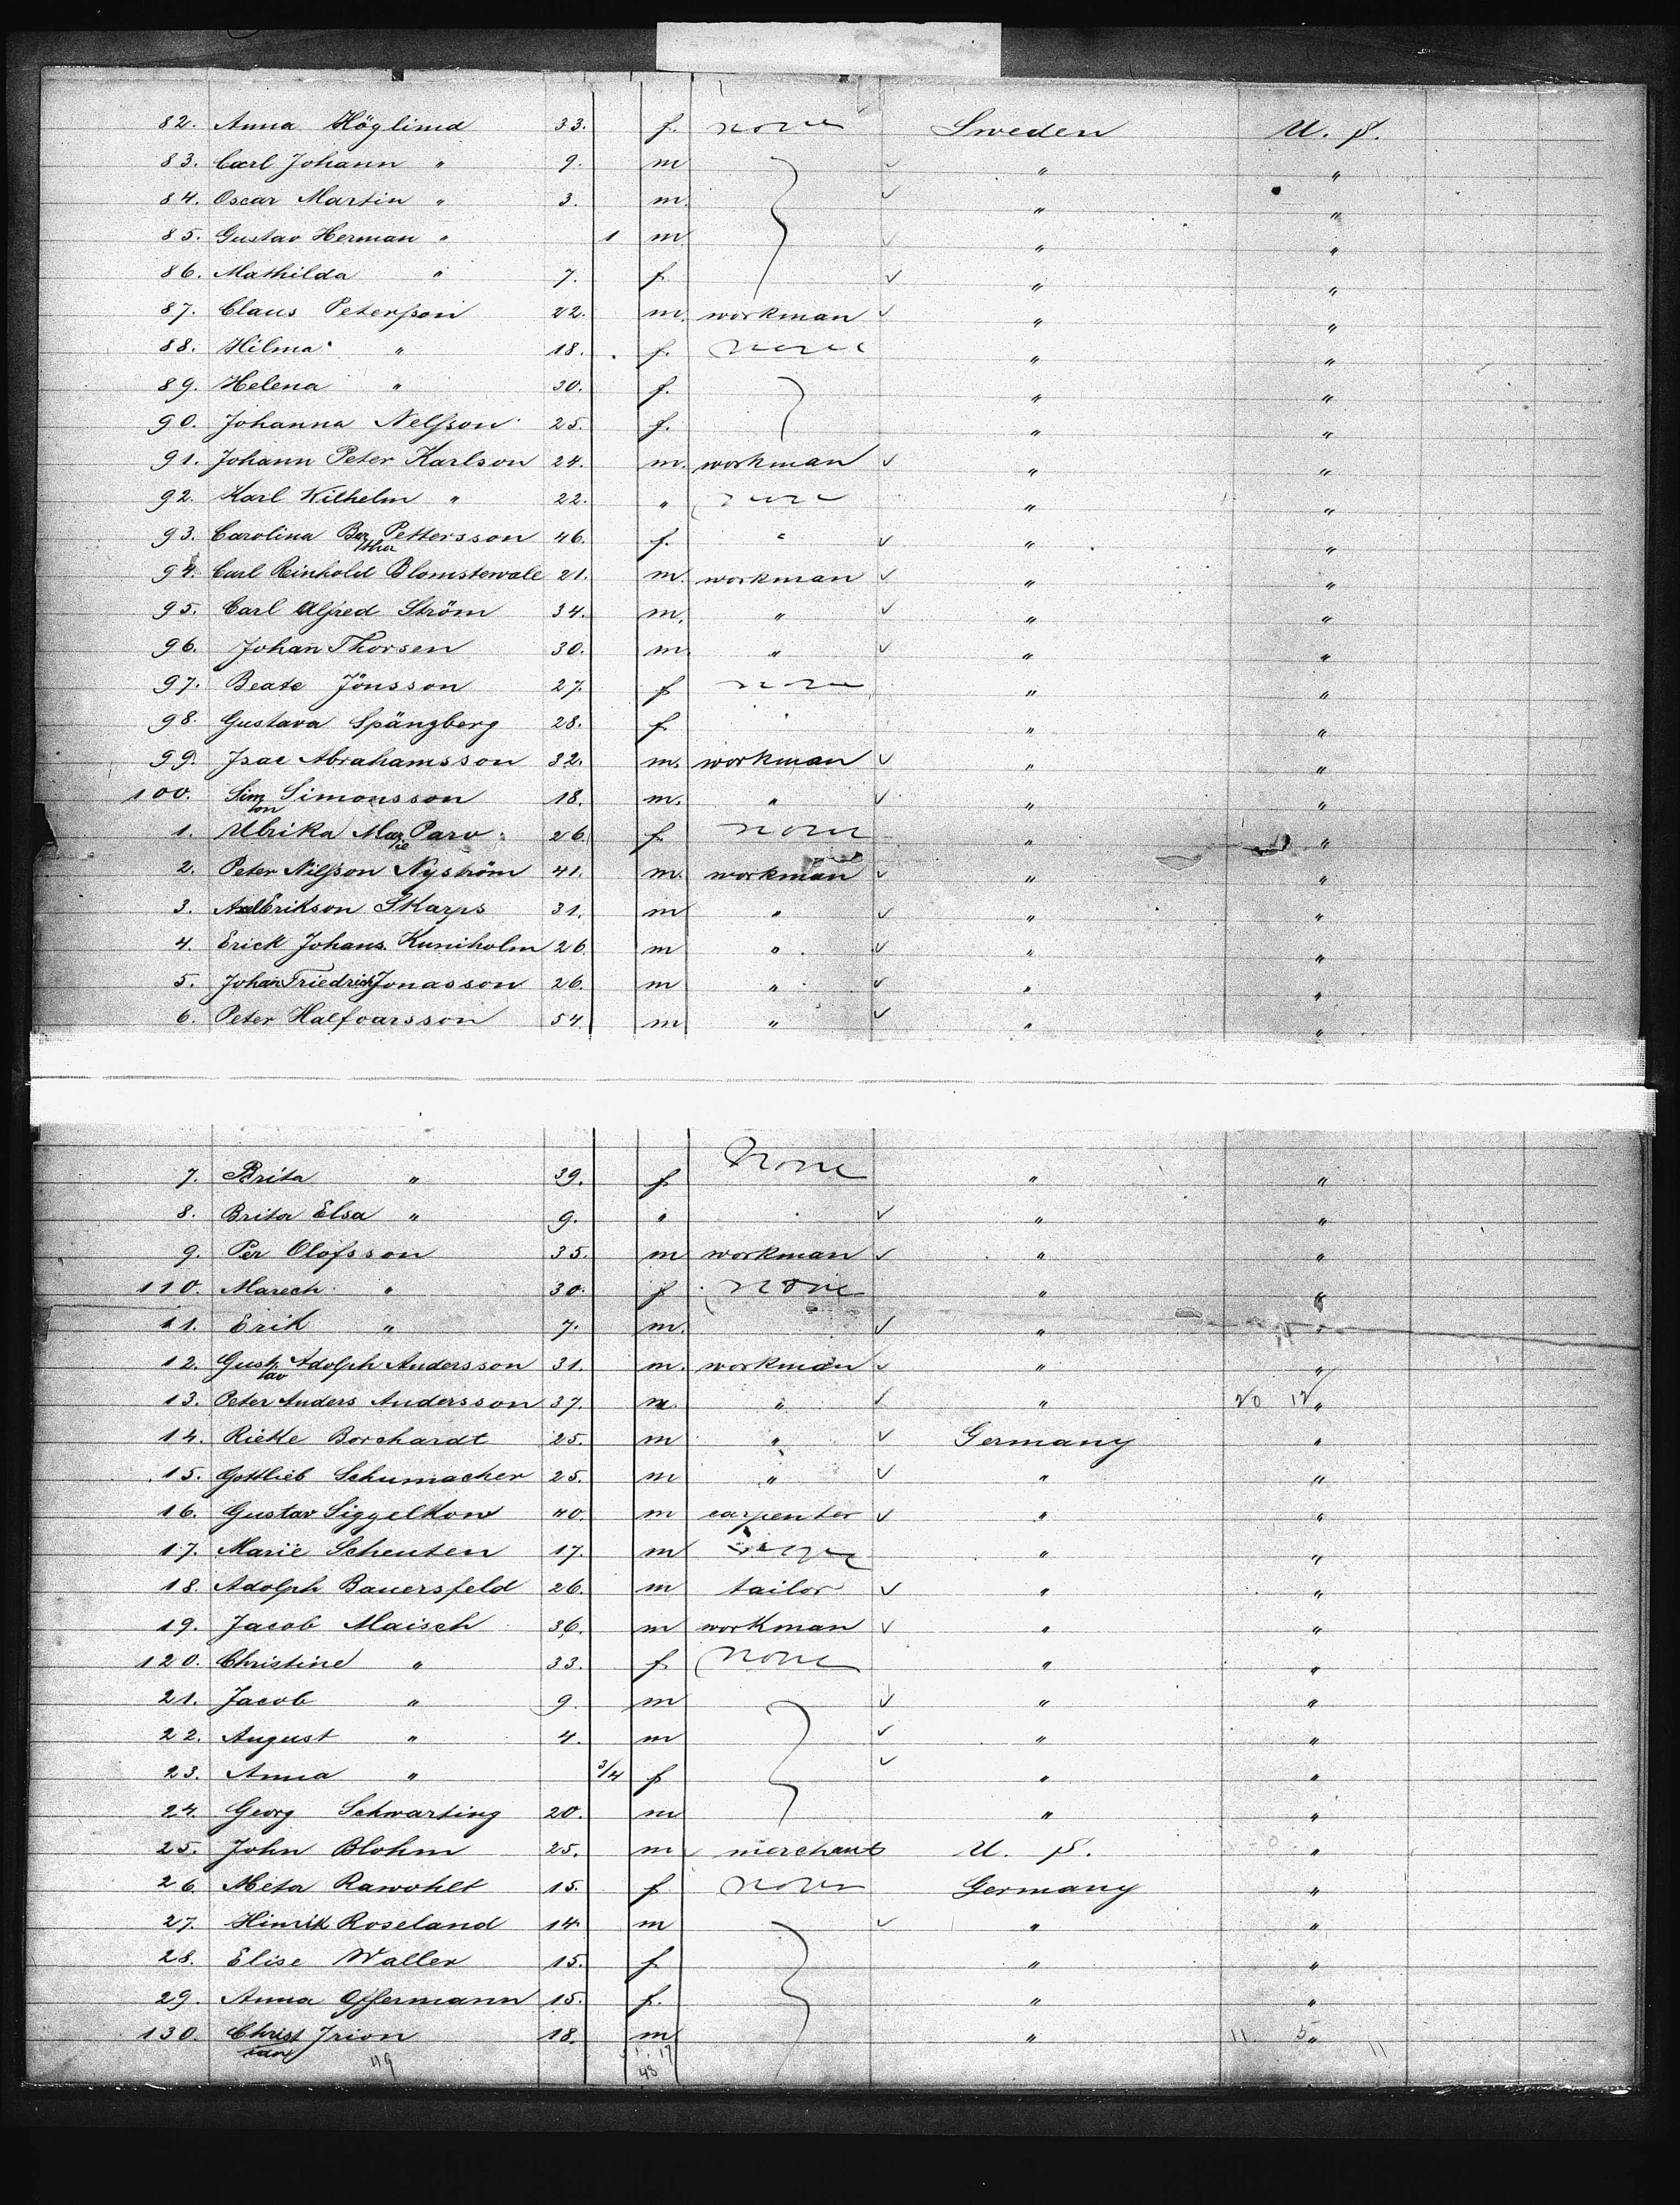 82. Anna Höglind 33. f. none Sweden U. S.
83. Carl Johann " 9. m " "
84. Oscar Martin " 3. m. " "
85. Gustav Herman " 1 m " "
86. Mathilda " 7. f. " "
87. Claus Petersson 22. m. workman " "
88. Hilma " 18. f. none " "
89. Helena " 30. f. " "
90. Johanna Nelsson 25. f. " "
91. Johann Peter Karlson 24. m. workman " "
92. Karl Wilhelm " 22. " none " "
93. Carolina Bertha Pettersson 46. f. " " "
94. Carl Reinhold Blomstervale 21. m. workman " "
95. Carl Alfred Ström 34. m. " " "
96. Johan Thorsen 30. m. " " "
97. Beate Jönsson 27. f none " "
98. Gustava Spängberg 28. f. " " "
99. Isac Abrahamsson 32. m. workman " "
100. Simton Simonsson 18. m. " " "
1. Ulrika Marie Parv 26. f. none " "
2. Peter Nilsson Nyström 41. m. workman " "
3. Axel Erikson Skarps 31. m " " "
4. Erick Johans. Kuniholm 26. m " " "
5. Johan Friedrich Jonasson 26. m " " "
6. Peter Halfvarsson 54. m " " "
7. Brita " 39. f none " "
8. Brita Elsa " 9. " " "
9. Per Olofsson 35. m workman " "
110. Marech " 30. f none " "
11. Erik " 7. m. " "
12. Gustav Adolph Andersson 31. m. workman " "
13. Peter Anders Andersson 37. m. " " 20 12 "
14. Riekle Borchardt 25. m " Germany "
15. Gottlieb Schumacher 25. m " " "
16. Gustav Siggelkow 40. m carpenter " "
17. Marie Scheuten 17. m " "
18. Adolph Bauersfeld 26. m tailor " "
19. Jacob Maisch 36. m workman " "
120. Christine " 33. f none " "
21. Jacob " 9. m " "
22. August " 4. m " "
23. Anna " 3/4 f " "
24. Georg Schwarting 20. m " "
25. John Blohm 25. m merchant U. S. "
26. Meta Rawohlt 15. f none Germany "
27. Hinrik Roseland 14. m " "
28. Elise Waller 15. f " "
29. Anna Offermann 15. f. " "
130. Christian Irion 18. m " 11 5 " 11
49 17
48